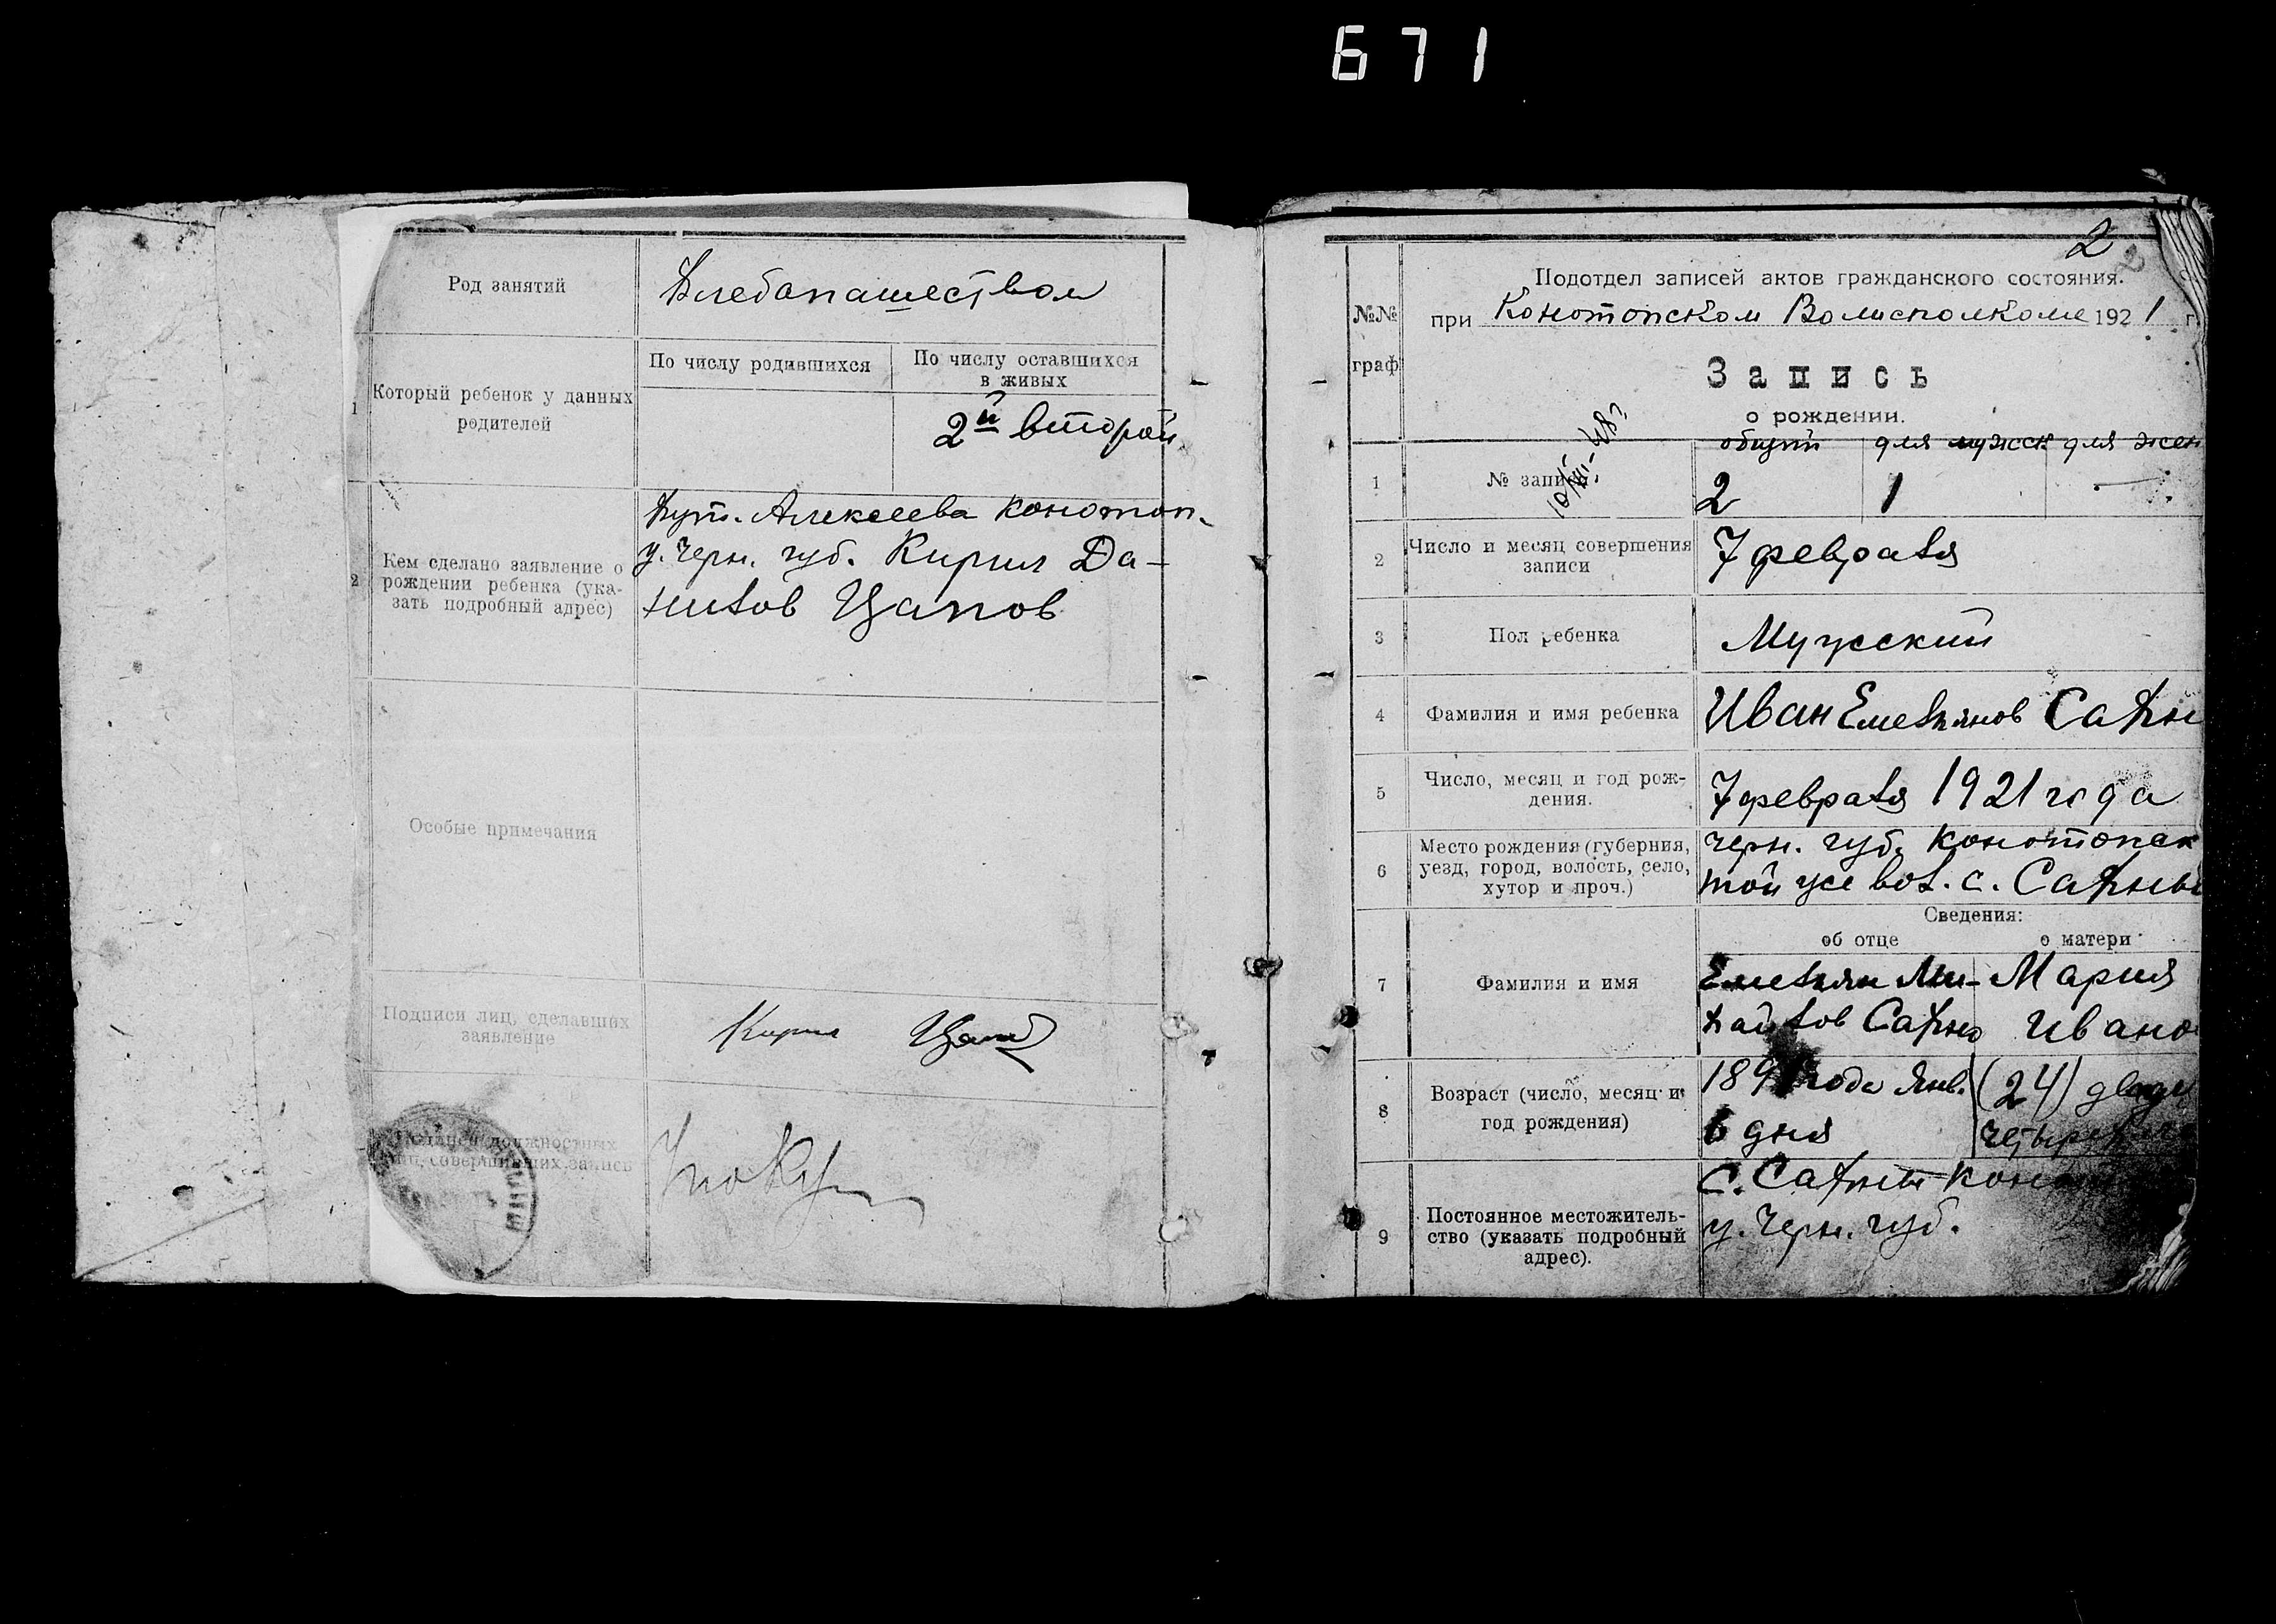 671
Род занятий
Хлебопашеством
1
Который ребенок у данных
родителей
По числу родившихся
По числу оставшихся
в живых
2й второй
2
Кем сделано заявление о
рождении ребенка (ука-
зать подробный адрес)
Хут. Алексеева Конотоп.
у. Черн. губ. Кирил Да-
нилов Цапов
Особые примечания
Подписи лиц, сделавших
заявление
Кирил
должностных
лиц, совершивших запись
2
2
№№
граф
Подотдел записей актов гражданского состояния.
при Конотопском Волисполкоме 1921 г.
Запись
о рождении.
общий для мужск для жен
1
№ записи
2
1
—
2
Число и месяц совершения
записи
7 февраля
3
Пол ребенка
Мужский
4
Фамилия и имя ребенка
Иван Емельянов Сахн
5
Число, месяц и год рож-
дения.
7 февраля 1921 года
6
Место рождения (губерния,
уезд, город, волость, село,
хутор и проч.)
Черн. губ. Конотопск
той же вол. с. Сахны
Сведения:
об отце
о матери
7
Фамилия и имя
Емельян Ми-
хайлов Сахно
Мария
Ивано
8
Возраст (число, месяц и
год рождения)
года Янв.
6 дня
(24) двадц
четыре
9
Постоянное местожитель-
ство (указать подробный
адрес).
у. Черн. губ.